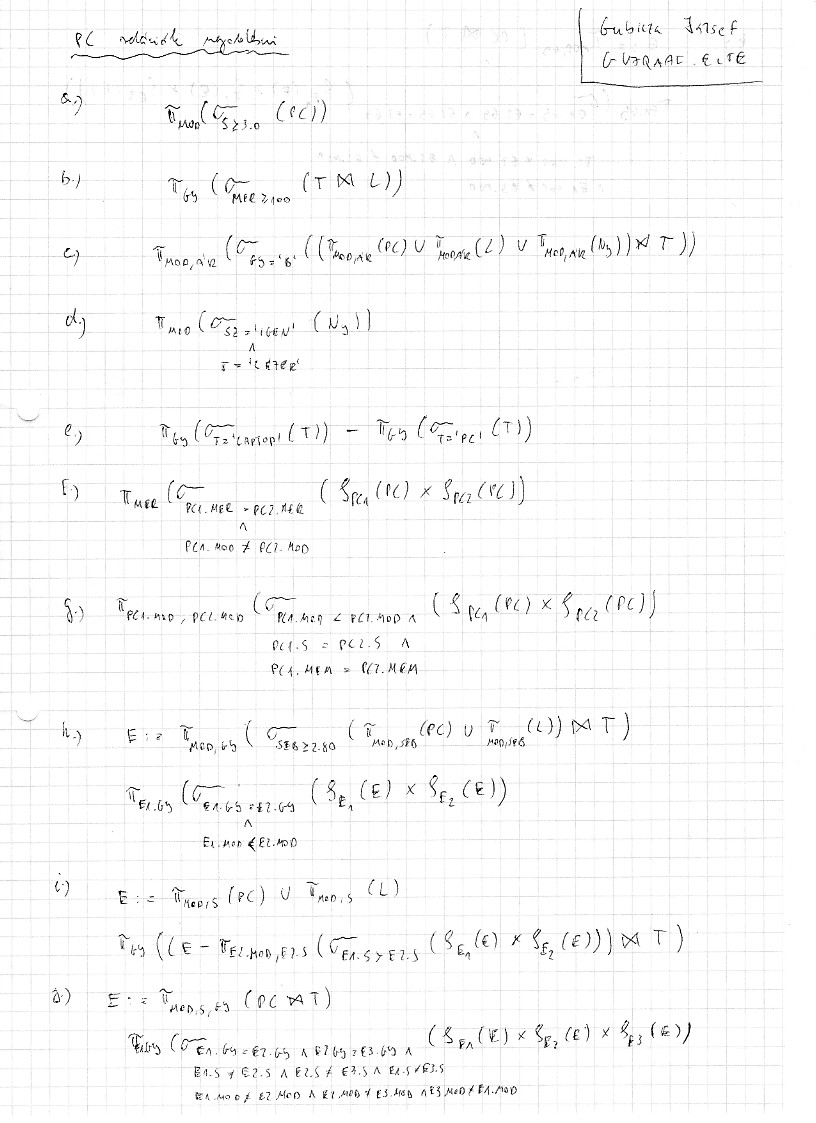 PC relációk megoldásai
Gubicza József
GUJRAAI.ELTE
a.) π MOD (σ S≥3.0 (PC))
b.) π GY (σ MER≥100 (T ⋈ L))
c.) π MOD,ÁR (σ GY='B' ((π MOD,ÁR (PC) ∪ π MOD,ÁR (L) ∪ π MOD,ÁR (Ny)) ⋈ T))
d.) π MOD (σ SZ='IGEN' (Ny))
∧
T='LÉZER'
e.) π GY (σ T='LAPTOP' (T)) − π GY (σ T='PC' (T))
f.) π MER (σ PC1.MER = PC2.MER (ρ PC1 (PC) × ρ PC2 (PC))
∧
PC1.MOD ≠ PC2.MOD
g.) π PC1.MOD, PC2.MOD (σ PC1.MOD < PC2.MOD ∧ (ρ PC1 (PC) × ρ PC2 (PC))
PC1.S = PC2.S ∧
PC1.MEM = PC2.MEM
h.) E := π MOD,GY (σ SEB≥2.80 (π MOD,SEB (PC) ∪ π MOD,SEB (L)) ⋈ T)
π E1.GY (σ E1.GY = E2.GY (ρ E1 (E) × ρ E2 (E))
∧
E1.MOD ≠ E2.MOD
i.) E := π MOD,S (PC) ∪ π MOD,S (L)
π GY ((E − π E2.MOD,E2.S (σ E1.S > E2.S (ρ E1 (E) × ρ E2 (E))) ⋈ T)
j.) E := π MOD,S,GY (PC ⋈ T)
π E1.GY (σ E1.GY=E2.GY ∧ E2.GY=E3.GY ∧ (ρ E1 (E) × ρ E2 (E) × ρ E3 (E))
E1.S ≠ E2.S ∧ E2.S ≠ E3.S ∧ E1.S ≠ E3.S
E1.MOD ≠ E2.MOD ∧ E2.MOD ≠ E3.MOD ∧ E3.MOD ≠ E1.MOD